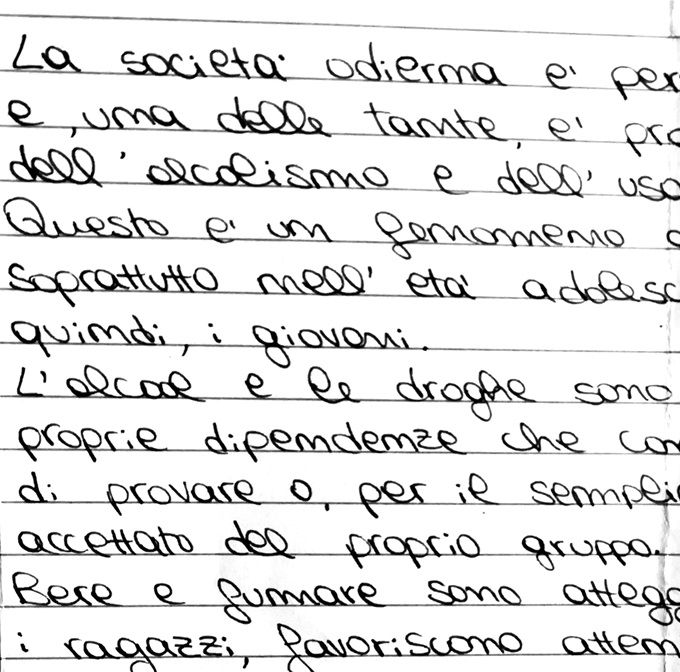 La società odierna e' per
e, una delle tante, e' pro
dell'alcolismo e dell'uso
Questo e' un fenomeno
soprattutto nell'età adolesc
quindi, i giovani.
L'alcool e le droghe sono
proprie dipendenze che con
di provare o, per il sempli
accettato del proprio gruppo.
Bere e fumare sono attegg
i ragazzi, favoriscono atten